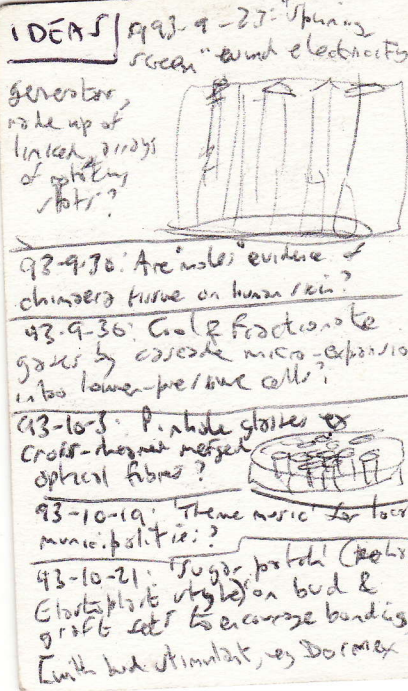 IDEAS 1993-9-27: "Spinning
screen" wind electricity
generator,
made up of
linked arrays
of rotating
slats?
93-9-30: Are "moles" evidence of
chimaera tissue on human skin?
93-9-30: Cool & fractionate
gases by cascade micro-expansion
into lower-pressure cells?
93-10-3: Pinhole glasses of
cross- merged
optical fibres?
93-10-19: 'Theme music' for local
municipalities?
93-10-21: 'Sugar patch'
Elastoplast style) on bud &
graft sets to encourage bonding
[with bud stimulant, eg Dormex